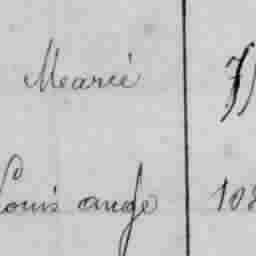 Mearié
Louis ange 108